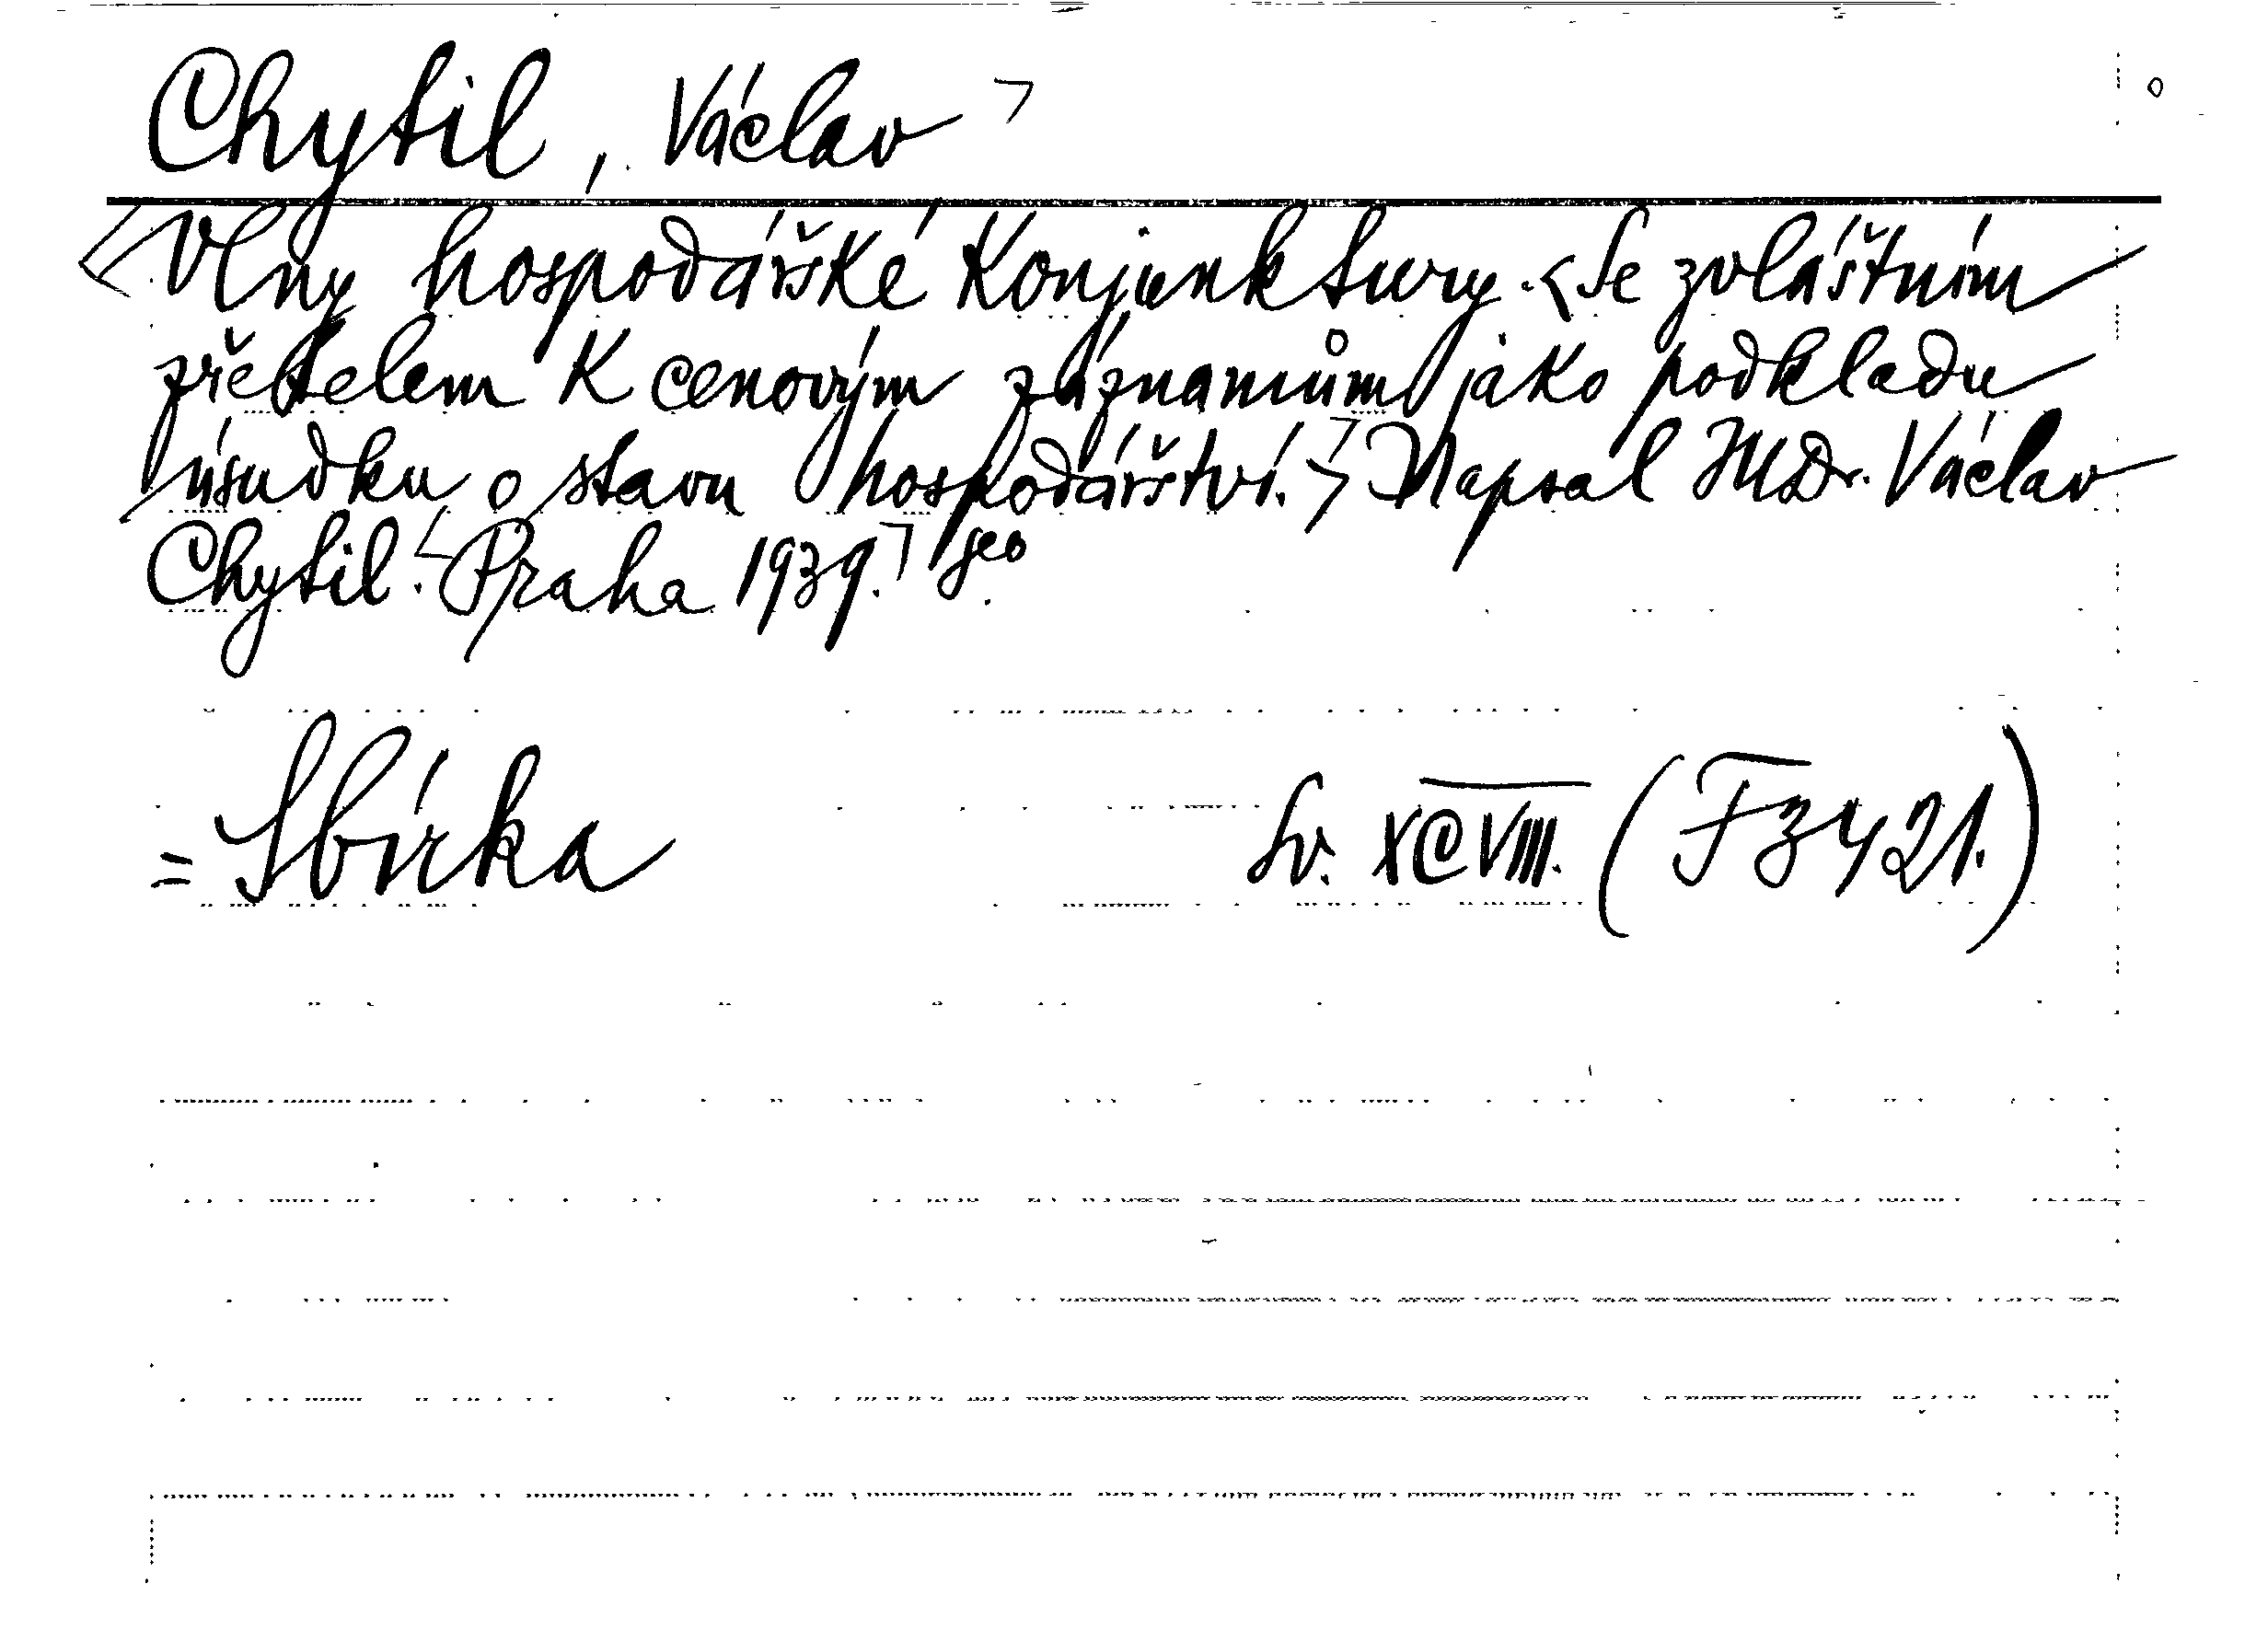 Chytil, Václav ⌝
<Vlny hospodářské konjunktury. <Se zvláštním
zřetelem k cenovým záznamům jako podkladu
úsudku o stavu hospodářství.⌝> Napsal JUDr. Václav
Chytil. <Praha 1939.⌝ 8eo.
= Sbírka Sv. XCVIII. (Fz 421.)